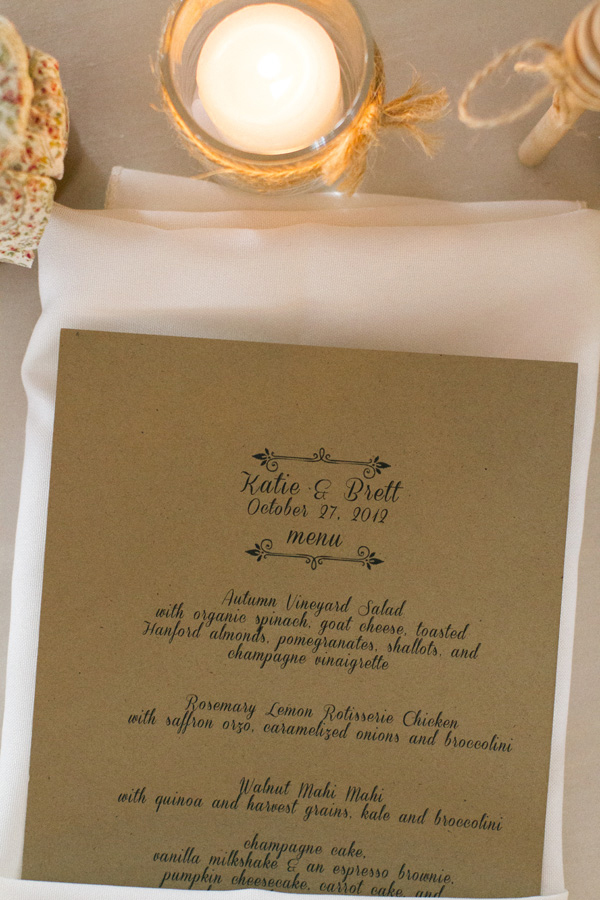 Katie & Brett
October 27, 2012
menu
Autumn Vineyard Salad
with organic spinach, goat cheese, toasted
Hanford almonds, pomegranates, shallots, and
champagne vinaigrette
Rosemary Lemon Rotisserie Chicken
with saffron orzo, caramelized onions and broccolini
Walnut Mahi Mahi
with quinoa and harvest grains, kale and broccolini
champagne cake,
vanilla milkshake & an espresso brownie,
pumpkin cheesecake, carrot cake, and